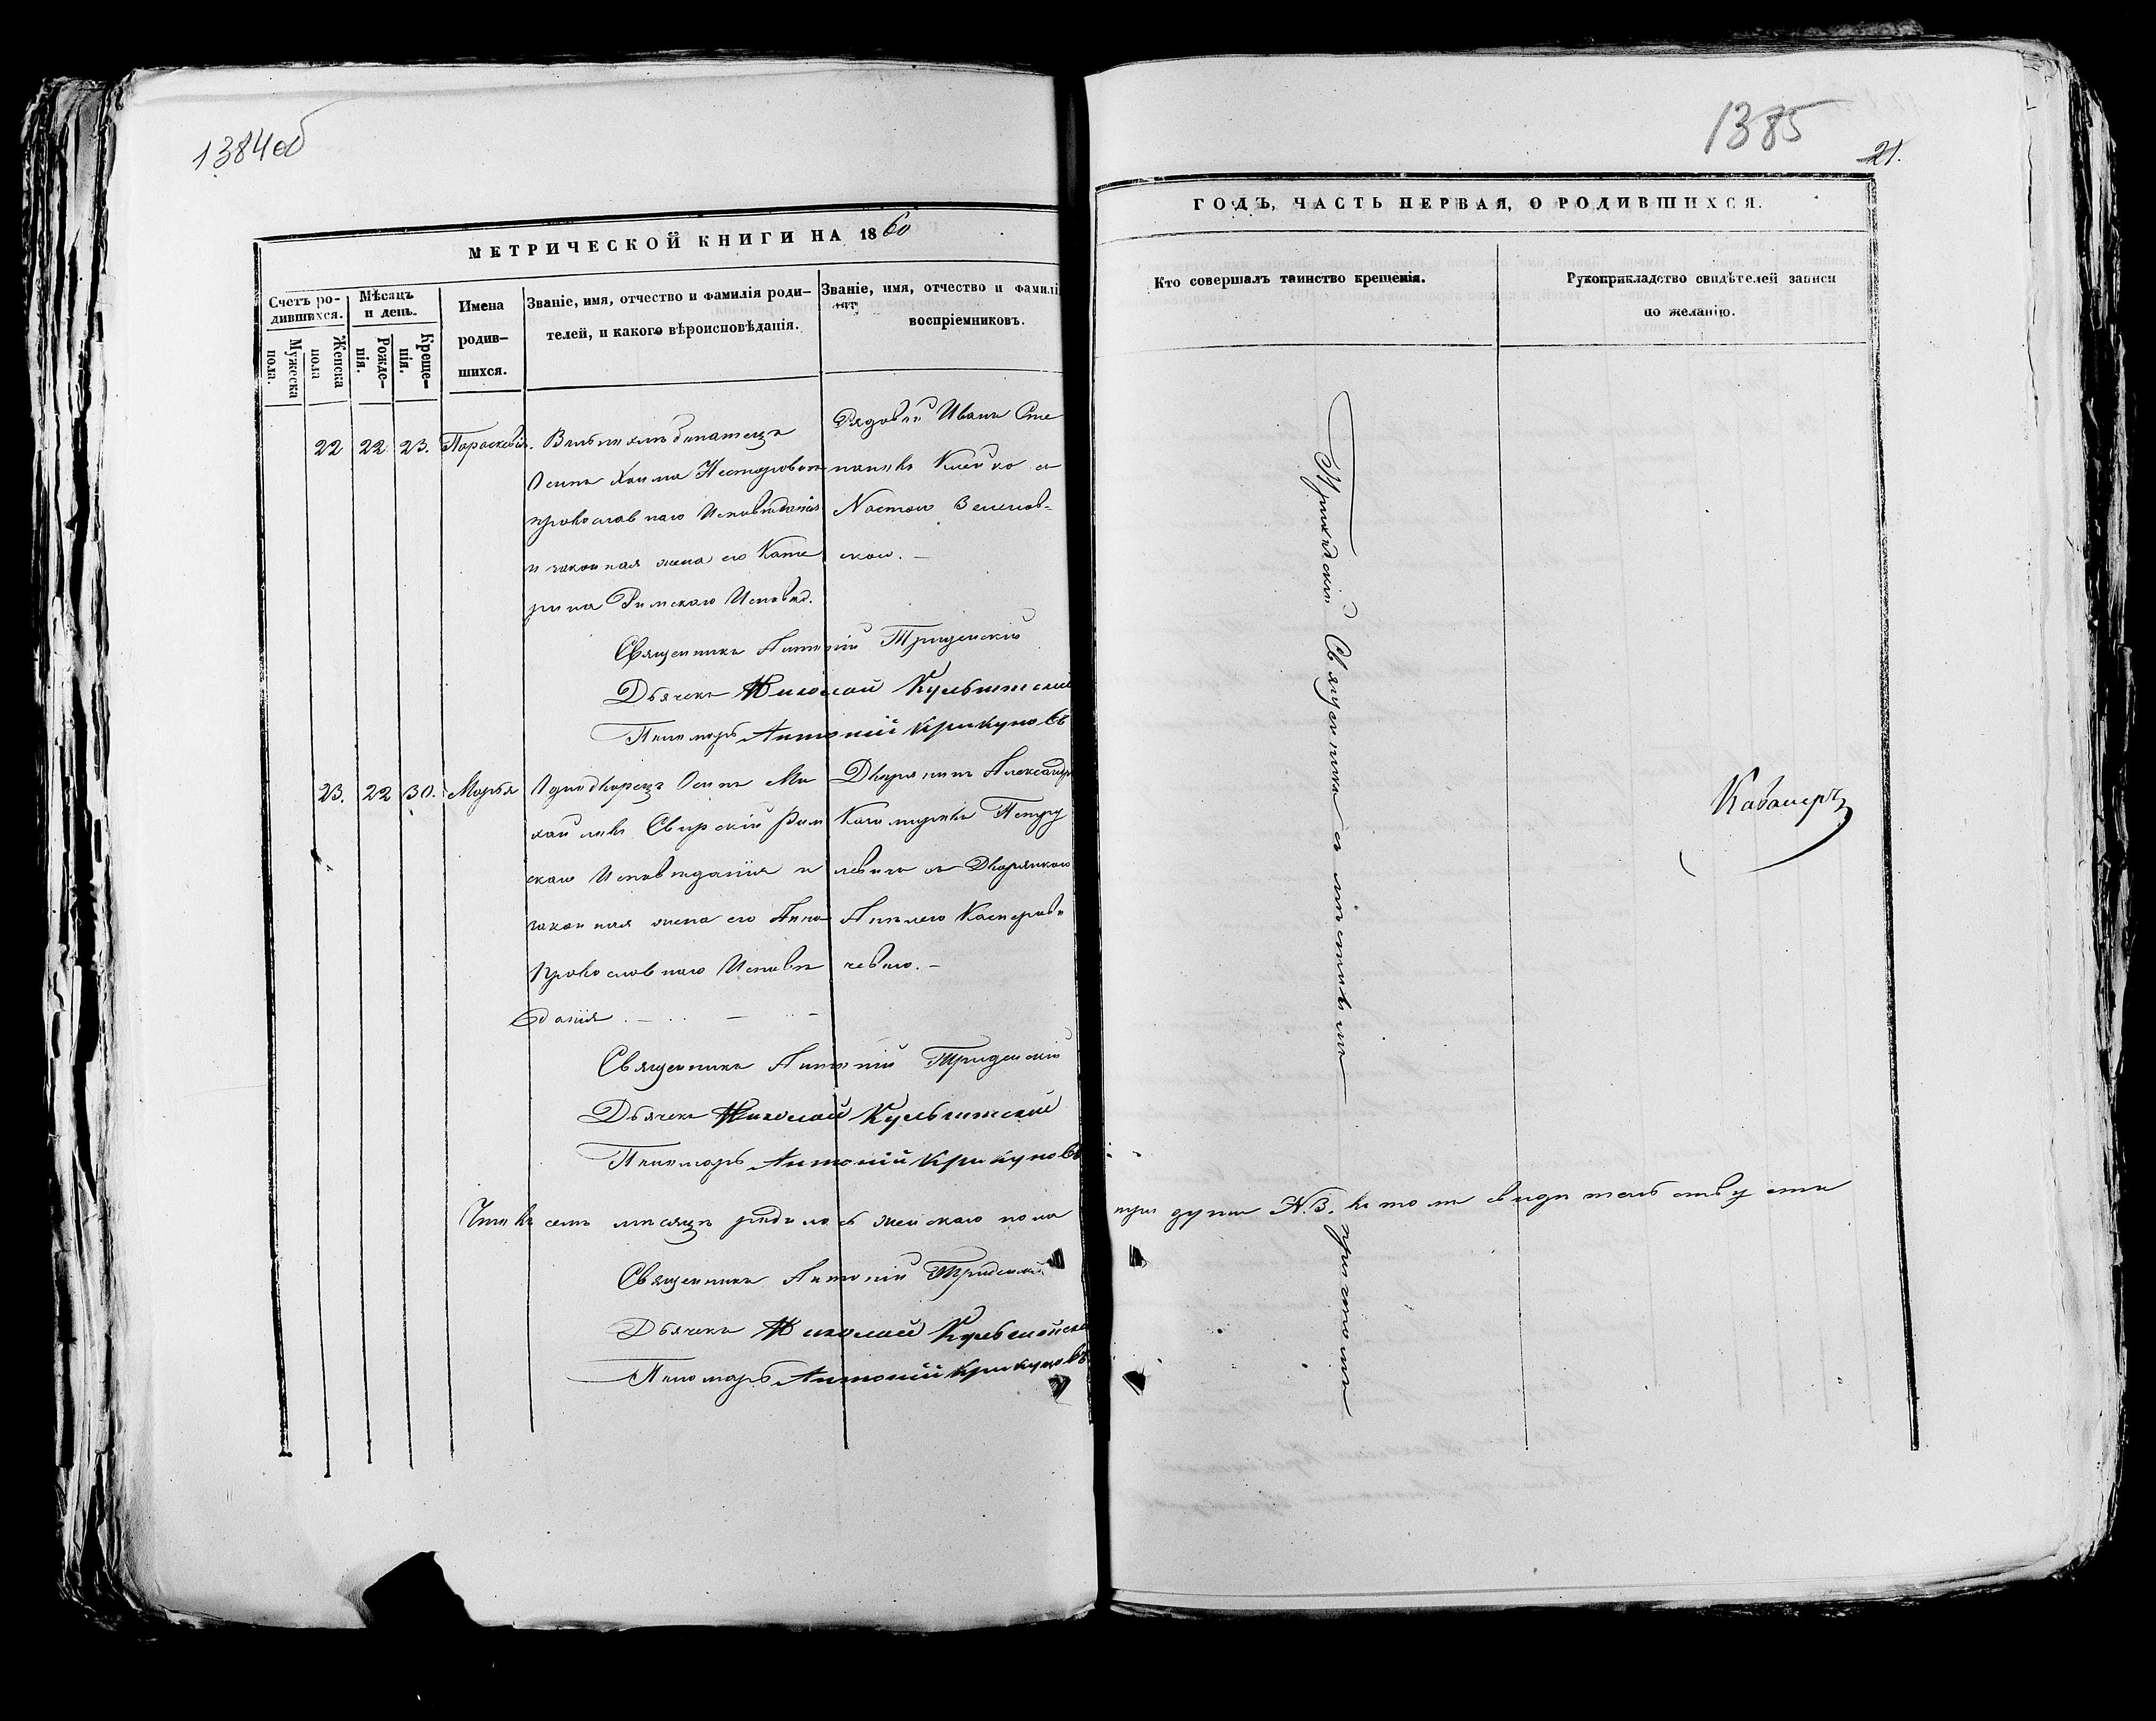 1384об
МЕТРИЧЕСКОЙ КНИГИ НА 1860
Счетъ ро-
дившихся.
Мужеска
пола.
Женска
пола
Мѣсяцъ
и день.
Рожде-
нія.
Креще-
нія.
Имена
родив-
шихся.
Званіе, имя, отчество и фамилія роди-
телей, и какого вѣроисповѣданія.
Званіе, имя, отчество и фамилі
воспріемниковъ.
22 22 23. Параскевія.
Осипъ
православнаго Исповѣданія
и законная жена его Кате
рина Римскаго Исповѣд.
Рядовый Иванъ Сте
пановъ съ
Настою Зелинов-
скою. —
Священникъ Антоній
Дьячекъ Николай
Пономарь Антоній Крикуновъ
23. 22 30. Марья
Однодворецъ Осипъ Ми
хайловъ Свирскій Рим
скаго Исповѣданія и
законная жена его Анна
Православнаго Исповѣ
данія. — — —
Дворянинъ Александръ
съ Дворянкою
чевою. —
Священникъ Антоній
Дьячекъ Николай
Пономарь Антоній Крикуновъ
Что въ семъ мѣсяцѣ родилось женскаго пола три души N. 3. въ томъ свидѣтельствуемъ
Священникъ Антоній
Дьячекъ Николай
Пономарь Антоній Крикуновъ
1385
21.
ГОДЪ, ЧАСТЬ ПЕРВАЯ, О РОДИВШИХСЯ.
Кто совершалъ таинство крещенія.
Рукоприкладство свидѣтелей записи
по желанію.
Приходскій Священникъ съ мѣстнымъ причтомъ